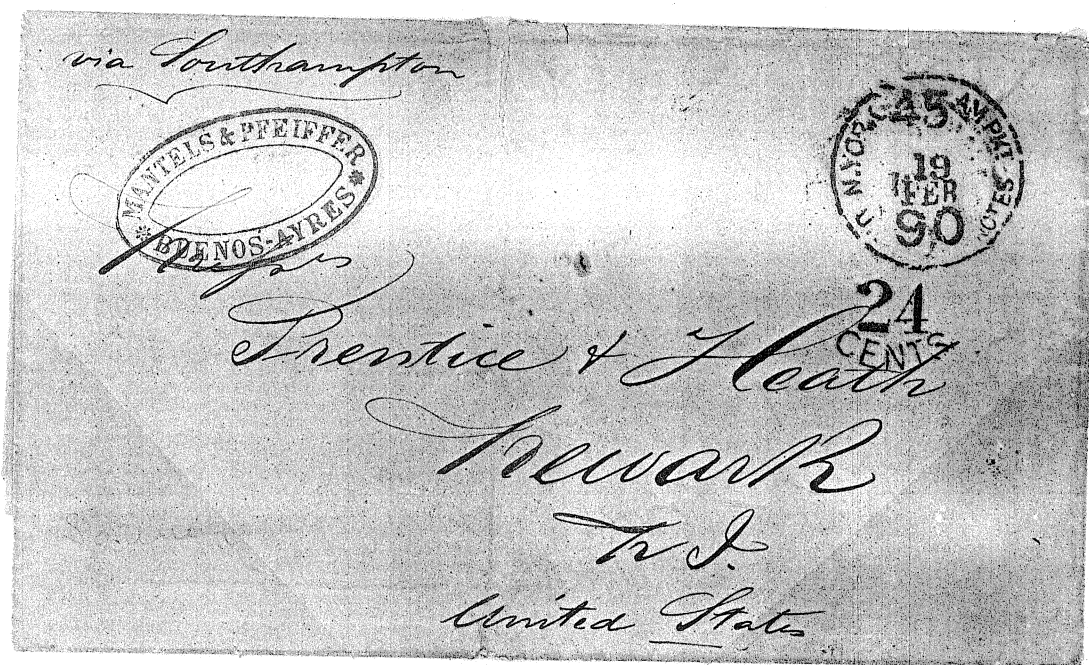 via Southampton
MANTELS & PFEIFFER
BUENOS-AYRES
45
N.YOR AM.PKT
19
FEB
90
NOTES
24
CENTS
Prentice & Heath
Newark
N J.
United States